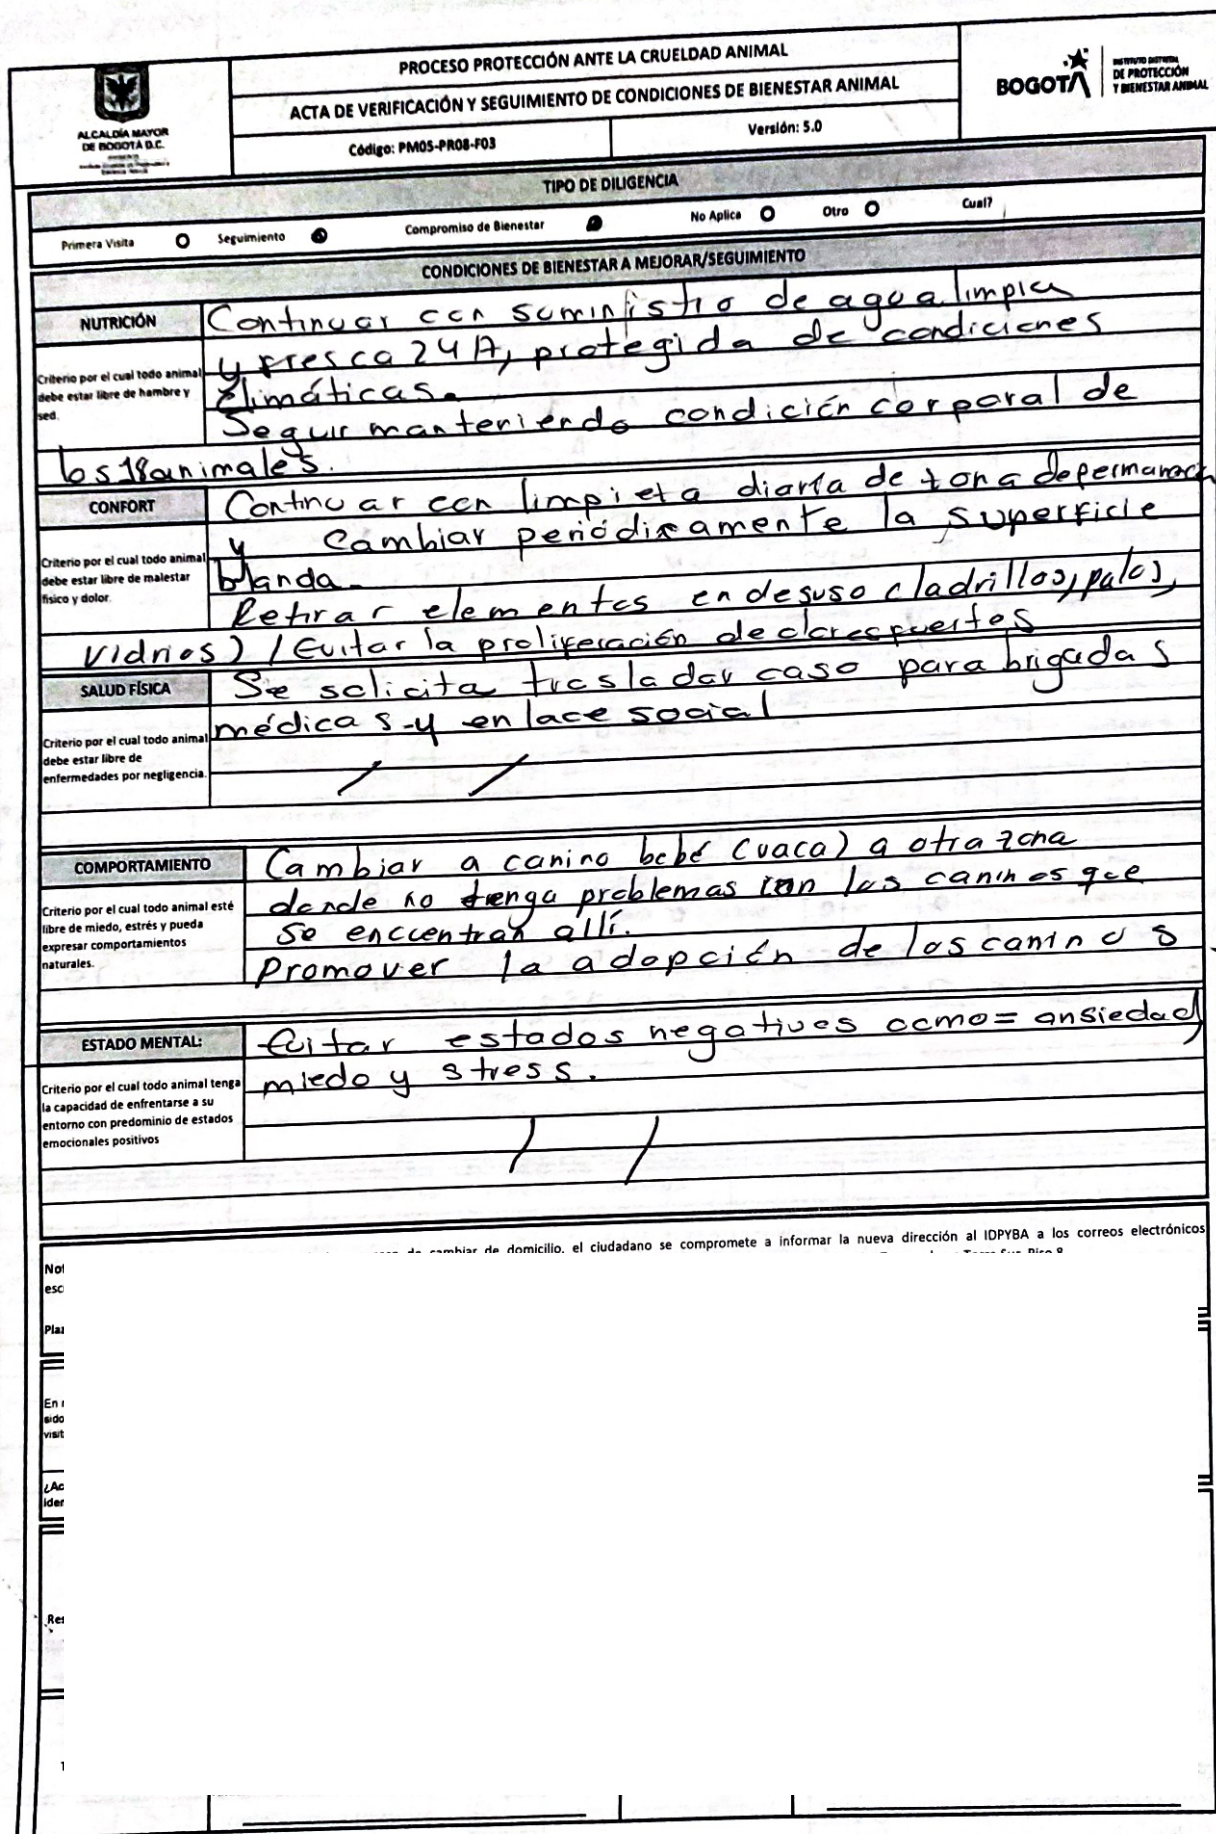 ALCALDÍA MAYOR
DE BOGOTÁ D.C.
PROCESO PROTECCIÓN ANTE LA CRUELDAD ANIMAL
ACTA DE VERIFICACIÓN Y SEGUIMIENTO DE CONDICIONES DE BIENESTAR ANIMAL
Código: PM05-PR08-F03
Versión: 5.0
BOGOTÁ
INSTITUTO DISTRITAL
DE PROTECCIÓN
Y BIENESTAR ANIMAL
TIPO DE DILIGENCIA
Primera Visita Seguimiento Compromiso de Bienestar No Aplica Otro Cual?
CONDICIONES DE BIENESTAR A MEJORAR/SEGUIMIENTO
NUTRICIÓN
Criterio por el cual todo animal
debe estar libre de hambre y
sed.
Continuar con suministro de agua limpia
y fresca 24H, protegida de condiciones
climáticas.
Seguir manteniendo condición corporal de
los 18 animales.
CONFORT
Criterio por el cual todo animal
debe estar libre de malestar
físico y dolor.
Continuar con limpieta diaria de zona de
y Cambiar periódicamente la superficie
blanda.
Retirar elementos en desuso (ladrillos, palos,
vidrios) / Evitar la proliferación de
SALUD FÍSICA
Criterio por el cual todo animal
debe estar libre de
enfermedades por negligencia.
Se solicita trasladar caso para brigadas
médicas y enlace social
COMPORTAMIENTO
Criterio por el cual todo animal esté
libre de miedo, estrés y pueda
expresar comportamientos
naturales.
Cambiar a canino bebé (vaca) a otra zona
donde no tenga problemas con los caninos que
se encuentran allí.
Promover la adopción de los caninos
ESTADO MENTAL:
Criterio por el cual todo animal tenga
la capacidad de enfrentarse a su
entorno con predominio de estados
emocionales positivos
Evitar estados negativos como= ansiedad,
miedo y stress.
de cambiar de domicilio, el ciudadano se compromete a informar la nueva dirección al IDPYBA a los correos electrónicos